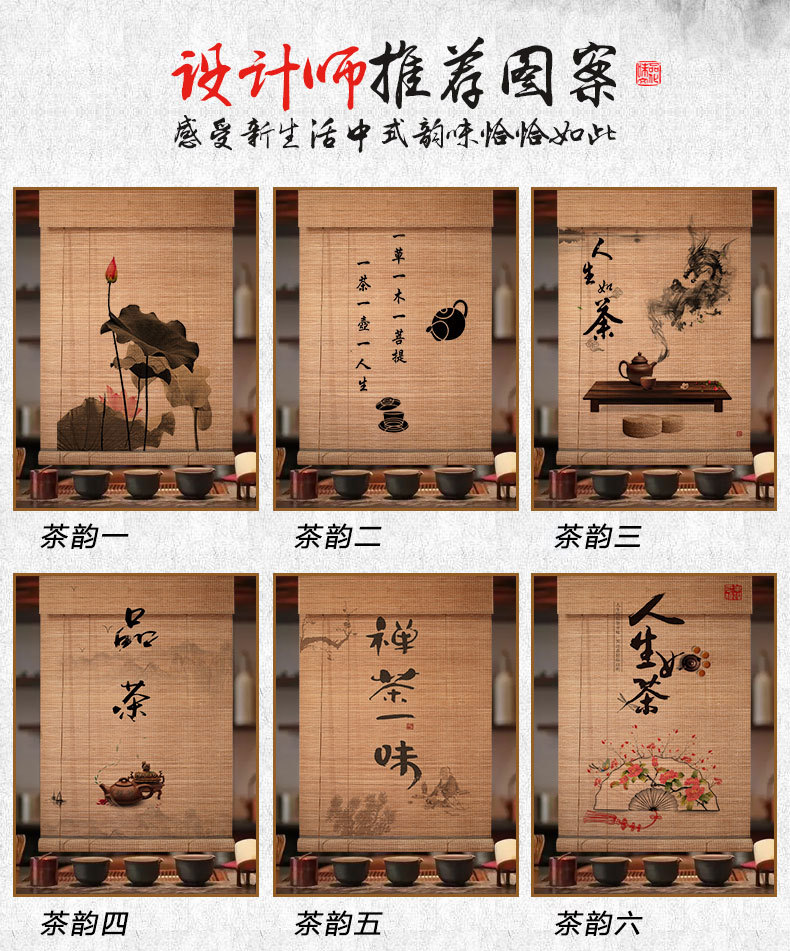 设计师推荐图案
感受新生活中式韵味恰恰如此
一草一木一菩提
一茶一壶一人生
人生如茶
茶韵一
茶韵二
茶韵三
品茶
禅茶一味
人生如茶
茶韵四
茶韵五
茶韵六